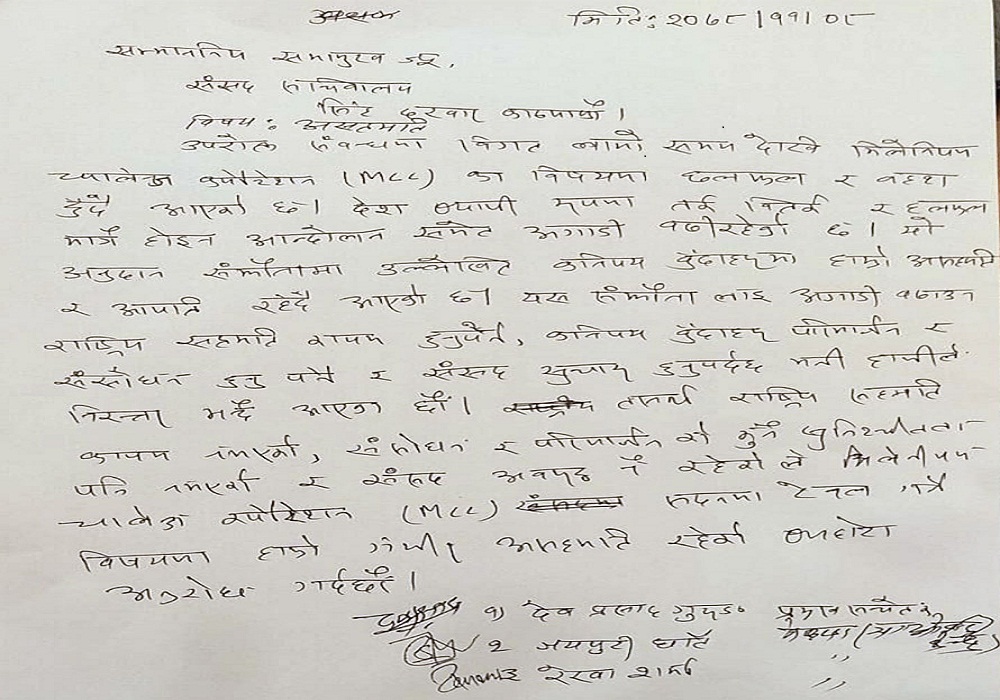 मिति: २०७८/११/०८
सम्माननिय सभामुख ज्यू,
संसद सचिवालय
सिंह दरबार काठमाण्डौं।
विषय: असहमति
उपरोक्त संबन्धमा विगत लामो समय देखि मिलेनियम
च्यालेन्ज कर्पोरेशन (MCC) का विषयमा छलफल र बहश
हुँदै आएको छ। देश व्यापी रूपमा तर्क वितर्क र छलफल
मात्रै होइन आन्दोलन समेत अगाडी बढीरहेको छ। यो
अनुदान संझौतामा उल्लेखित कतिपय बुंदाहरूमा हाम्रो असहमति
र आपत्ति रहँदै आएको छ। यस संझौता लाई अगाडी बढाउन
राष्ट्रिय सहमति कायम हुनुपर्ने, कतिपय बुंदाहरू परिमार्जन र
संसोधन हुनु पर्ने र संसद सुचारू हुनुपर्दछ भनी हामीले
निरन्तर भन्दै आएका छौं। तसर्थ राष्ट्रिय सहमति
कायम नभएको, संसोधन र परिमार्जन को कुनै सुनिश्चितता
पनि नभएको र संसद अवरूद्ध नै रहेको ले मिलेनीयम
च्यालेन्ज कर्पोरेशन (MCC) सदनमा टेबल गर्ने
विषयमा हाम्रो गंभीर असहमति रहेको व्यहोरा
अनुरोध गर्दछौं।
१) देव प्रसाद गुरुङ प्रमुख सचेतक
२ जयपुरी घर्ति
३ रेखा शर्मा